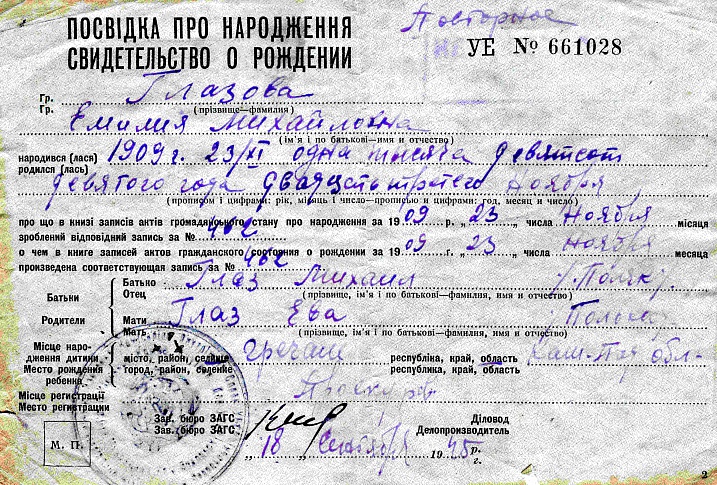 ПОСВІДКА ПРО НАРОДЖЕННЯ
СВИДЕТЕЛЬСТВО О РОЖДЕНИИ
Повторное
УЕ № 661028
Гр. Глазова
Гр. (прізвище—фамилия)
Емилия Михайловна
(ім'я і по батькові—имя и отчество)
народився (лася) 1909 г. 23/XI одна тысяча девятсот
родился (лась)
девятого года двадцать третего Ноября
(прописом і цифрами: рік, місяць і число—прописью и цифрами: год, месяц и число)
про що в книзі записів актів громадянського стану про народження за 1909 р. „23" числа Ноября місяця
зроблений відповідний запис за № 462
о чем в книге записей актов гражданского состояния о рождении за 1909 г. „23" числа ноября месяца
произведена соответствующая запись за № 462
Батьки
Родители
Батько Глаз Михаил /Поляк/
Отец (прізвище, ім'я і по батькові—фамилия, имя и отчество)
Мати Глаз Ева /Полька/
Мать (прізвище, ім'я і по батькові—фамилия, имя и отчество)
Місце на-
родження дитини
Место рождения
ребенка
місто, район, селище Гречани республіка, край, область Кам-Под обл-
город, район, селение республика, край, область
Місце реєстрації Проскуров
Место регистрации
Зав. бюро ЗАГС
Зав. бюро ЗАГС
Діловод
Делопроизводитель
М. П.
„18" Сентября 1945 р.
г.
2